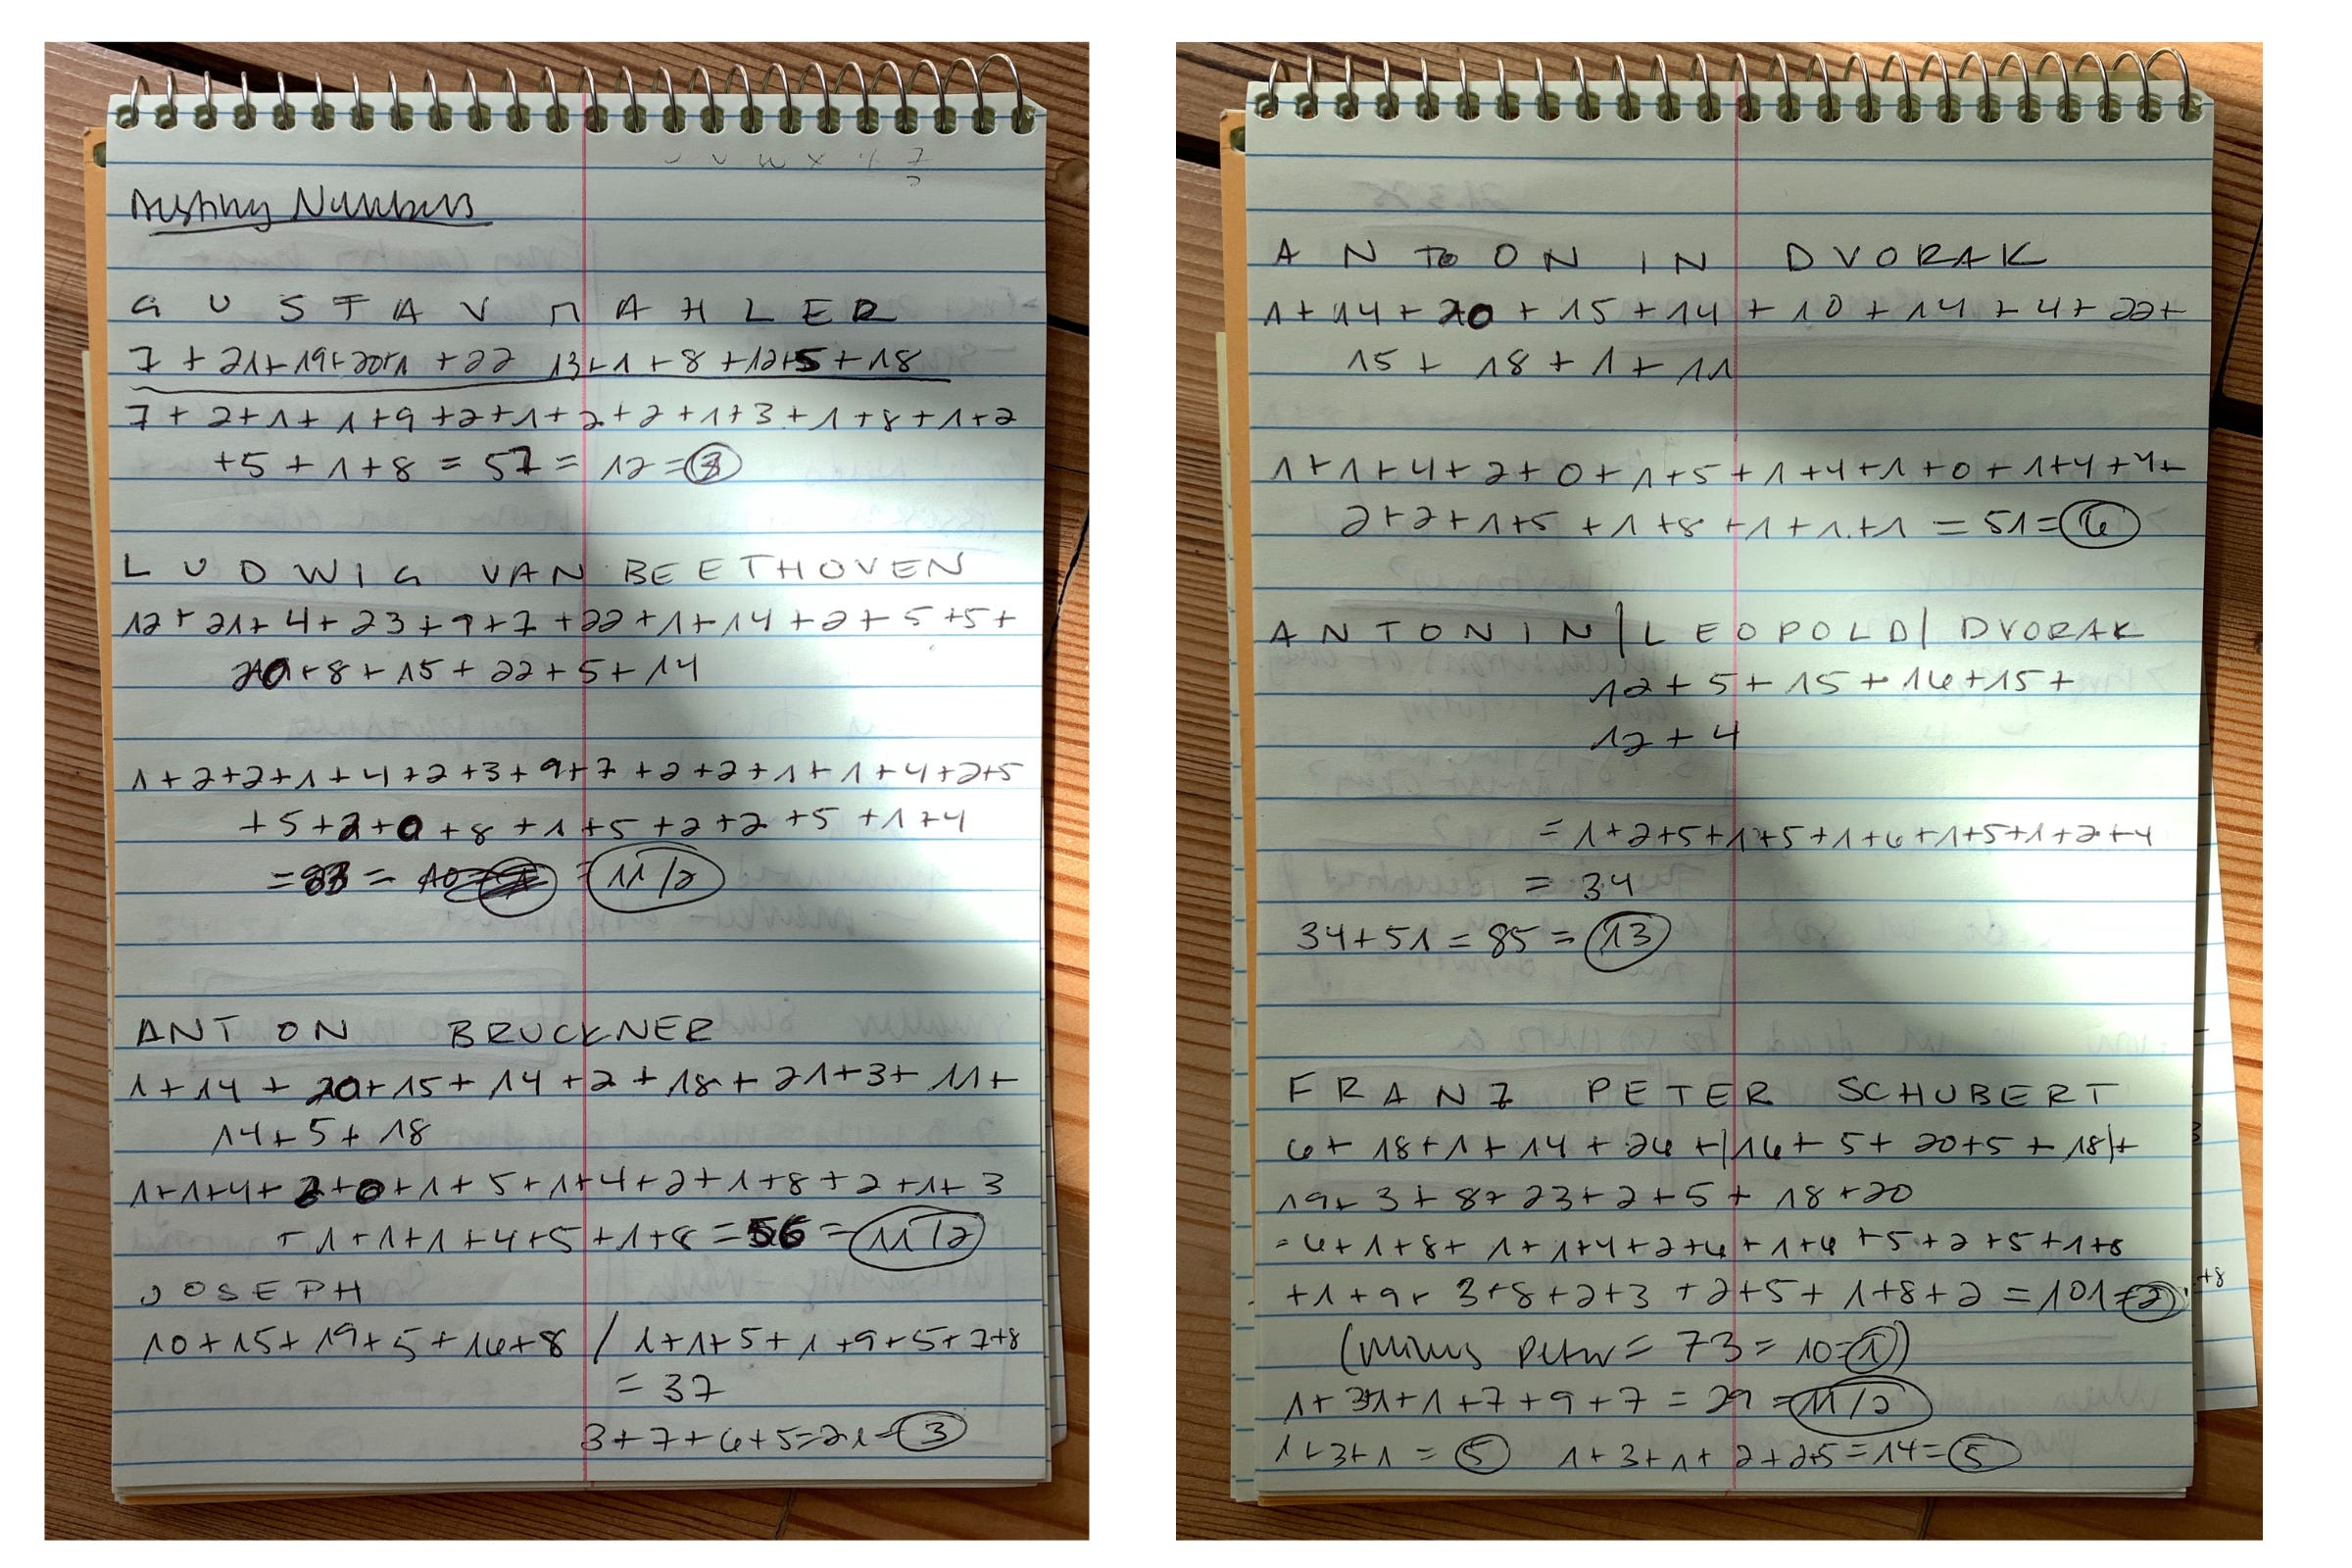 Destiny Numbers
G U S T A V M A H L E R
7 + 21+19+20+1 + 22 13+1+8+12+5+18
7 + 2+1+1+9+2+1+2+2+1+3+1+8+1+2
+5+1+8 = 57 = 12 = 3
L U D W I G VAN BEETHOVEN
12+21+4+23+9+7+22+1+14+2+5+5+
20+8+15+22+5+14
1+2+2+1+4+2+3+9+7+2+2+1+1+4+2+5
+5+2+0+8+1+5+2+2+5+1+4
= 83 = = 11/2
ANTON BRUCKNER
1+14+20+15+14+2+18+21+3+11+
14+5+18
1+1+4+2+0+1+5+1+4+2+1+8+2+1+3
+1+1+1+4+5+1+8 = 56 = 11/2
JOSEPH
10+15+19+5+16+8 / 1+1+5+1+9+5+7+8
= 37
3+7+6+5=21=3
A N T O N I N D V O R A K
1+14+20+15+14+10+14+4+22+
15+18+1+11
1+1+4+2+0+1+5+1+4+1+0+1+4+4+
2+2+1+5+1+8+1+1+1 = 51 = 6
A N T O N I N | L E O P O L D | D V O R A K
12+5+15+16+15+
12+4
= 1+2+5+1+5+1+6+1+5+1+2+4
= 34
34+51 = 85 = 13
F R A N Z P E T E R S C H U B E R T
6+18+1+14+26+|16+5+20+5+18|+
19+3+8+23+2+5+18+20
= 6+1+8+1+1+4+2+6+1+6+5+2+5+1+8
+1+9+3+8+2+3+2+5+1+8+2 = 101 = 2
(minus Peter = 73 = 10 = 1)
1+31+1+7+9+7 = 29 = 11/2
1+3+1 = 5 1+3+1+2+2+5=14=5
+8